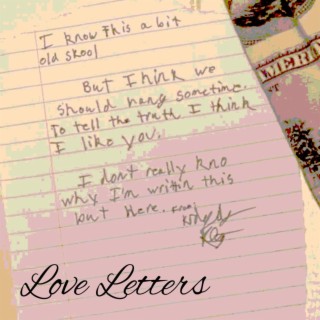 I know this a bit
old skool
But I think we
should hang sometime.
To tell the truth I think
I like you.
I dont really kno
why I'm writin this
but here. From
Love Letters